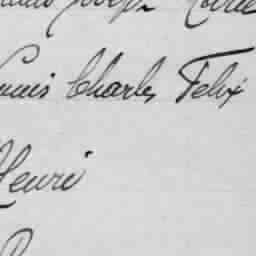 Joseph
Louis Charles Felix
Henri